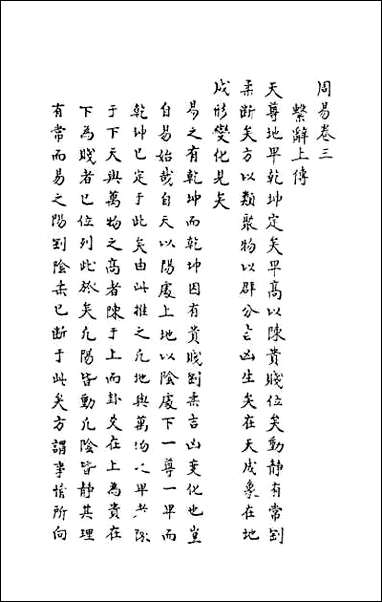 周易卷三
繫辭上傳
天尊地卑乾坤定矣卑高以陳貴賤位矣動靜有常剛
柔斷矣方以類聚物以群分吉凶生矣在天成象在地
成形變化見矣
易之有乾坤而乾坤因有貴賤剛柔吉凶變化也豈
自易始哉自天以陽處上地以陰處下一尊一卑而
乾坤已定于此矣由此推之凡地與萬物之卑者陳
于下天與萬物之高者陳于上而卦爻在上為貴在
下為賤者已位列此於矣凡陽皆動凡陰皆靜其理
有常而易之陽剛陰柔已斷于此矣方謂事情所向